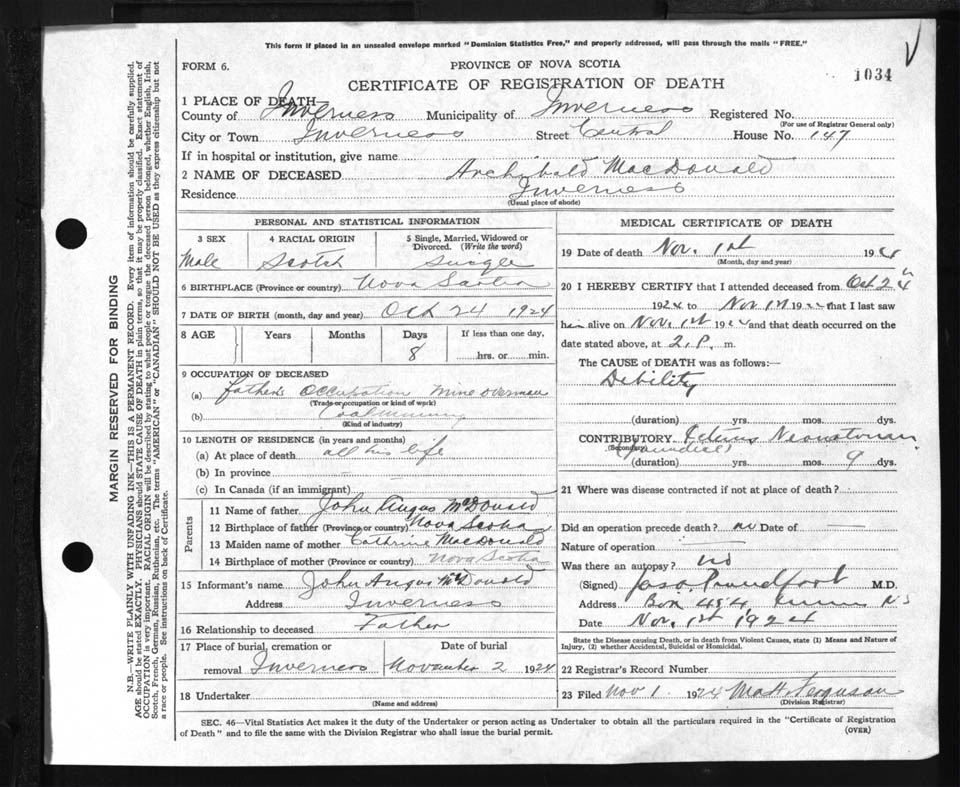 This form if placed in an unsealed envelope marked "Dominion Statistics Free," and properly addressed, will pass through the mails "FREE."
FORM 6.
PROVINCE OF NOVA SCOTIA
1034
CERTIFICATE OF REGISTRATION OF DEATH
1 PLACE OF DEATH—
County of Inverness Municipality of Inverness Registered No.
(For use of Registrar General only)
City or Town Inverness Street Central House No. 147
If in hospital or institution, give name
2 NAME OF DECEASED Archibald MacDonald
Residence Inverness
(Usual place of abode)
PERSONAL AND STATISTICAL INFORMATION
3 SEX 4 RACIAL ORIGIN 5 Single, Married, Widowed or Divorced. (Write the word)
Male Scotch Single
6 BIRTHPLACE (Province or country) Nova Scotia
7 DATE OF BIRTH (month, day and year) Oct 24 1924
8 AGE Years Months Days If less than one day,
8 hrs. or min.
9 OCCUPATION OF DECEASED
(a) Father's Occupation Mine Overman
(Trade or occupation or kind of work)
(b) Coal Mining
(Kind of industry)
10 LENGTH OF RESIDENCE (in years and months)
(a) At place of death all his life
(b) In province
(c) In Canada (if an immigrant)
Parents
11 Name of father John Angus McDonald
12 Birthplace of father (Province or country) Nova Scotia
13 Maiden name of mother Cathrine MacDonald
14 Birthplace of mother (Province or country) Nova Scotia
15 Informant's name John Angus McDonald
Address Inverness
16 Relationship to deceased Father
17 Place of burial, cremation or Date of burial
removal Inverness November 2 1924
18 Undertaker
(Name and address)
MEDICAL CERTIFICATE OF DEATH
19 Date of death Nov. 1st 1924
(Month, day and year)
20 I HEREBY CERTIFY that I attended deceased from Oct 24th
1924 to Nov 1st 1924 that I last saw
him alive on Nov. 1st 1924 and that death occurred on the
date stated above, at 2.P. m.
The CAUSE of DEATH was as follows:—
Debility
(duration) yrs. mos. dys.
CONTRIBUTORY Icterus Neonatorum
(Secondary) (Jaundice)
(duration) yrs. mos. 9 dys.
21 Where was disease contracted if not at place of death?
Did an operation precede death? no Date of
Nature of operation
Was there an autopsy? no
(Signed) M.D.
Address Box 454, N S
Date Nov. 1st 1924
State the Disease causing Death, or in death from Violent Causes, state (1) Means and Nature of Injury, (2) whether Accidental, Suicidal or Homicidal.
22 Registrar's Record Number
23 Filed Nov 1 1924 Matt. Ferguson
(Division Registrar)
SEC. 46—Vital Statistics Act makes it the duty of the Undertaker or person acting as Undertaker to obtain all the particulars required in the "Certificate of Registration
of Death" and to file the same with the Division Registrar who shall issue the burial permit.
(OVER)
MARGIN RESERVED FOR BINDING
N.B.—WRITE PLAINLY WITH UNFADING INK—THIS IS A PERMANENT RECORD. Every item of information should be carefully supplied.
AGE should be stated EXACTLY. PHYSICIANS should STATE CAUSE OF DEATH in plain terms, so that it may be properly classified. Exact statement of
OCCUPATION is very important. RACIAL ORIGIN will be described by stating to what people or tongue the deceased person belonged, whether English, Irish,
Scotch, French, German, Russian, Ruthenian, etc. The terms "AMERICAN" or "CANADIAN" SHOULD NOT BE USED as they express citizenship but not
a race or people. See instructions on back of Certificate.